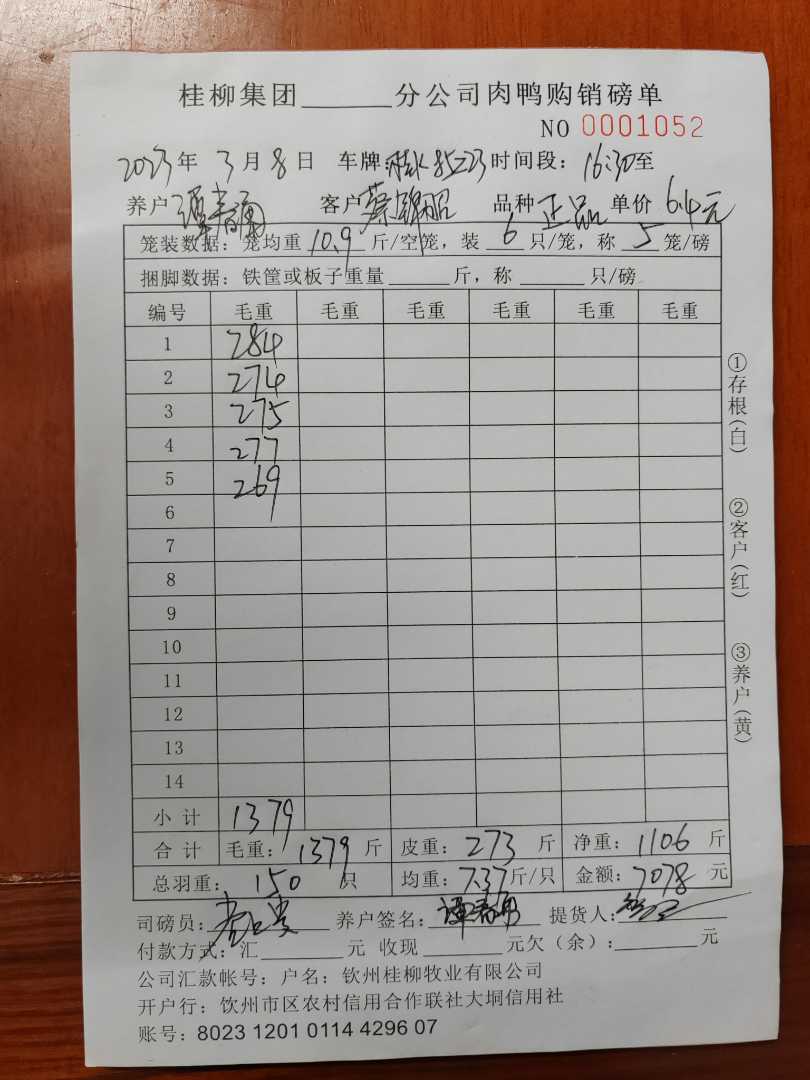 桂柳集团______分公司肉鸭购销磅单
NO 0001052
2023年 3月 8日 车牌: 时间段: 16:30至
养户 谭春勇 客户 蔡锦昭 品种 正品 单价 6.4元
笼装数据: 笼均重 10.9 斤/空笼, 装 6 只/笼, 称 5 笼/磅
捆脚数据: 铁筐或板子重量______斤, 称______只/磅
编号 毛重 毛重 毛重 毛重 毛重 毛重
1 284
2 274
3 275
4 277
5 269
6
7
8
9
10
11
12
13
14
小 计 1379
合 计 毛重: 1379 斤 皮重: 273 斤 净重: 1106 斤
总羽重: 150 只 均重: 7.37斤/只 金额: 7078 元
司磅员: 养户签名: 谭春勇 提货人:
付款方式: 汇______元 收现______元欠(余):______元
公司汇款帐号: 户名: 钦州桂柳牧业有限公司
开户行: 饮州市区农村信用合作联社大垌信用社
账号: 8023 1201 0114 4296 07
①存根(白)
②客户(红)
③养户(黄)